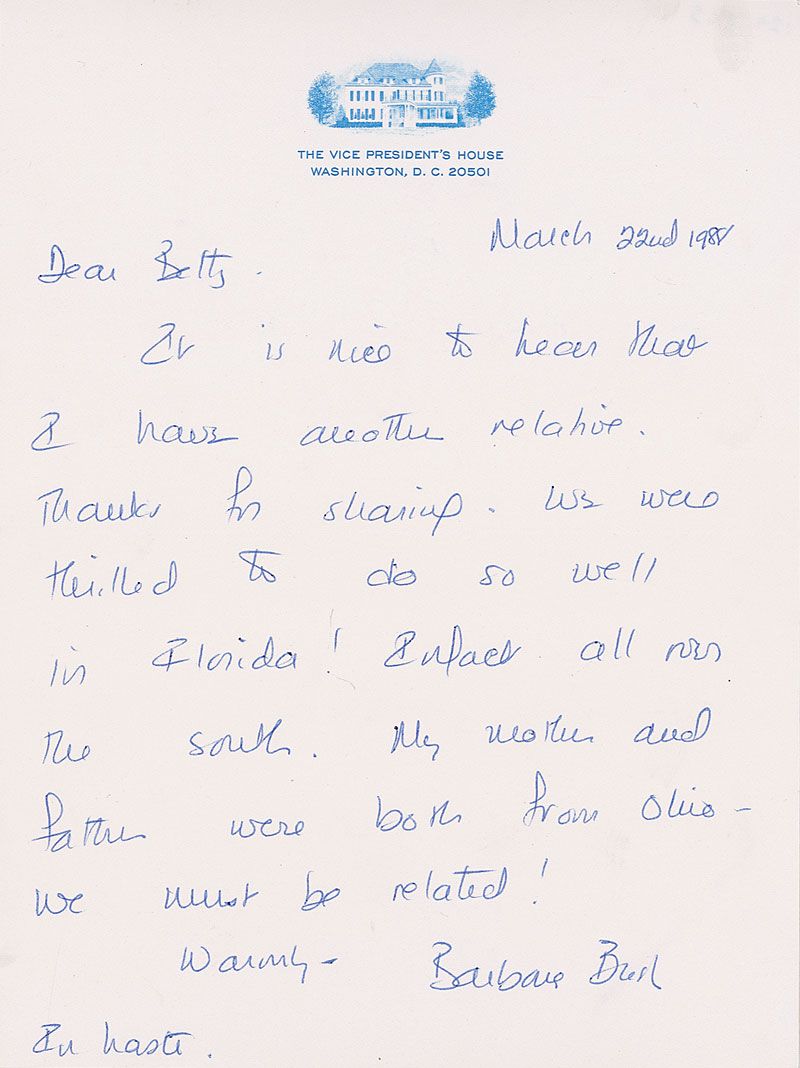 THE VICE PRESIDENT'S HOUSE
WASHINGTON, D. C. 20501
March 22nd 1988
Dear Betty.
It is nice to hear that
I have another relative.
Thanks for sharing. We were
thrilled to do so well
in Florida! Infact all over
the south. My mother and
father were both from Ohio –
we must be related!
Warmly – Barbara Bush
In haste.